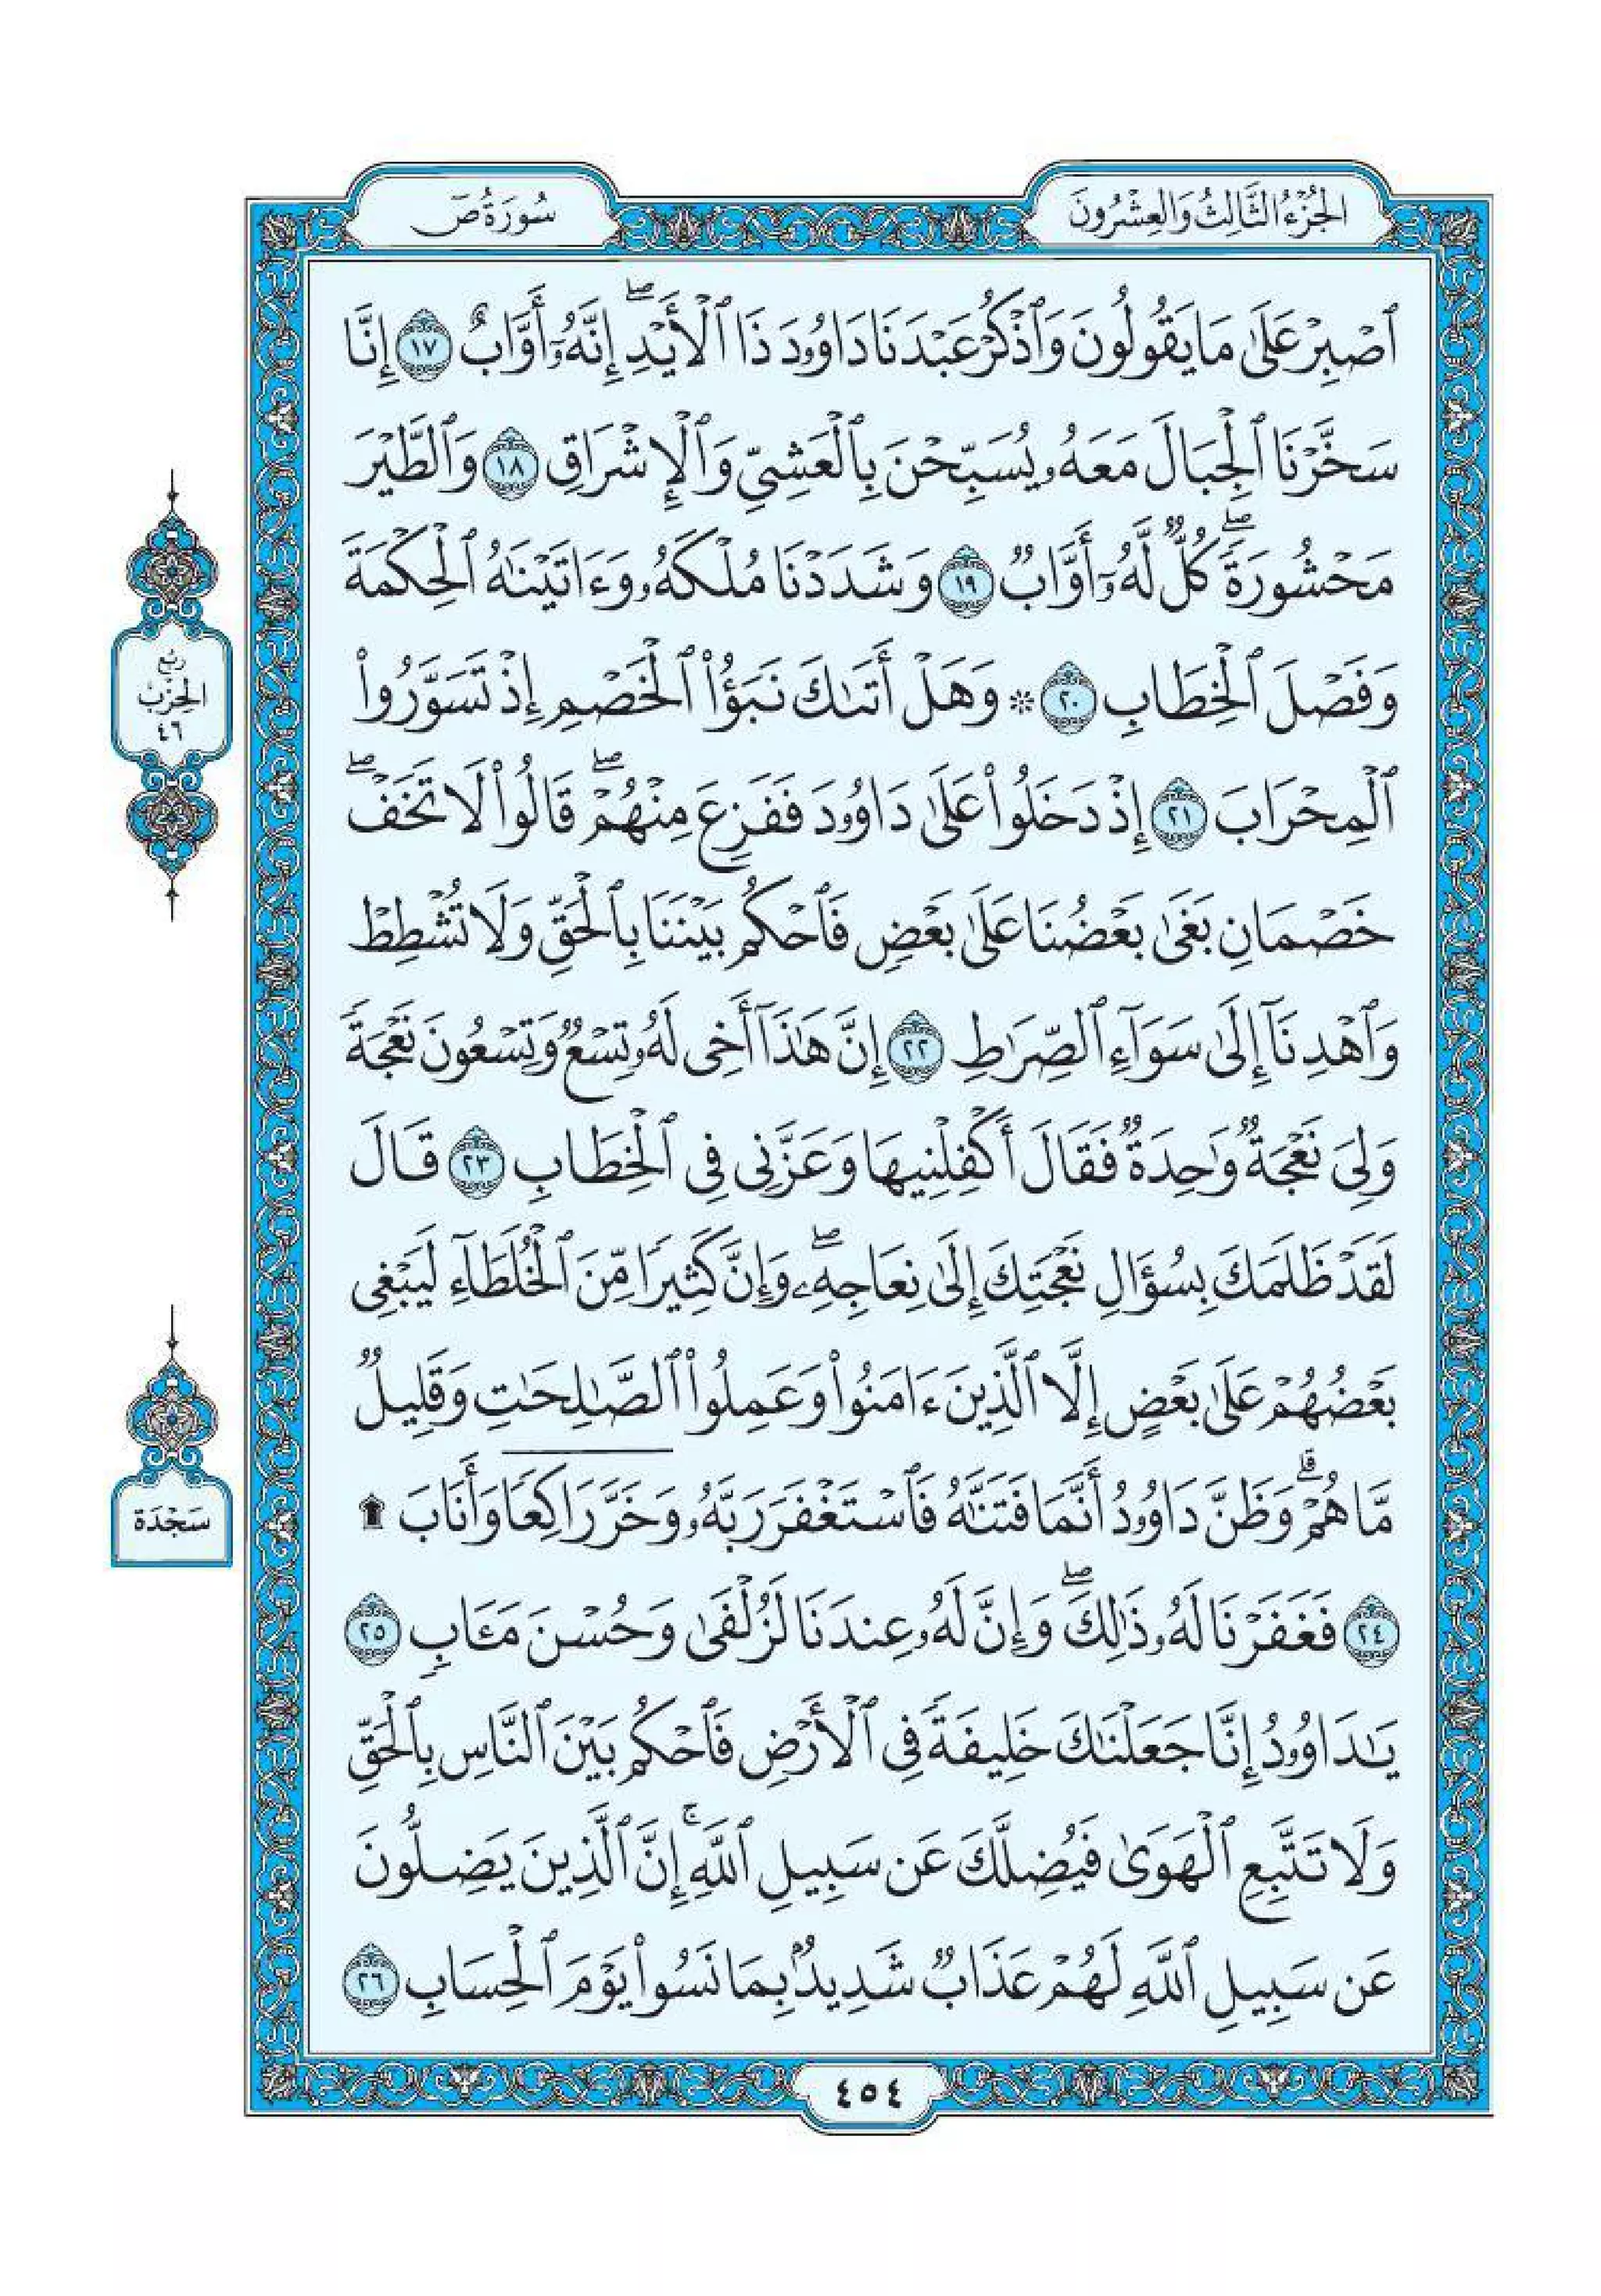 الجزء الثالث والعشرون
سورة ص
ٱصۡبِرۡ عَلَىٰ مَا يَقُولُونَ وَٱذۡكُرۡ عَبۡدَنَا دَاوُۥدَ ذَا ٱلۡأَيۡدِۖ إِنَّهُۥٓ أَوَّابٌ ١٧ إِنَّا
سَخَّرۡنَا ٱلۡجِبَالَ مَعَهُۥ يُسَبِّحۡنَ بِٱلۡعَشِيِّ وَٱلۡإِشۡرَاقِ ١٨ وَٱلطَّيۡرَ
مَحۡشُورَةٗۖ كُلّٞ لَّهُۥٓ أَوَّابٞ ١٩ وَشَدَدۡنَا مُلۡكَهُۥ وَءَاتَيۡنَٰهُ ٱلۡحِكۡمَةَ
وَفَصۡلَ ٱلۡخِطَابِ ٢٠ ۞ وَهَلۡ أَتَىٰكَ نَبَؤُاْ ٱلۡخَصۡمِ إِذۡ تَسَوَّرُواْ
ٱلۡمِحۡرَابَ ٢١ إِذۡ دَخَلُواْ عَلَىٰ دَاوُۥدَ فَفَزِعَ مِنۡهُمۡۖ قَالُواْ لَا تَخَفۡۖ
خَصۡمَانِ بَغَىٰ بَعۡضُنَا عَلَىٰ بَعۡضٖ فَٱحۡكُم بَيۡنَنَا بِٱلۡحَقِّ وَلَا تُشۡطِطۡ
وَٱهۡدِنَآ إِلَىٰ سَوَآءِ ٱلصِّرَٰطِ ٢٢ إِنَّ هَٰذَآ أَخِي لَهُۥ تِسۡعٞ وَتِسۡعُونَ نَعۡجَةٗ
وَلِيَ نَعۡجَةٞ وَٰحِدَةٞ فَقَالَ أَكۡفِلۡنِيهَا وَعَزَّنِي فِي ٱلۡخِطَابِ ٢٣ قَالَ
لَقَدۡ ظَلَمَكَ بِسُؤَالِ نَعۡجَتِكَ إِلَىٰ نِعَاجِهِۦۖ وَإِنَّ كَثِيرٗا مِّنَ ٱلۡخُلَطَآءِ لَيَبۡغِي
بَعۡضُهُمۡ عَلَىٰ بَعۡضٍ إِلَّا ٱلَّذِينَ ءَامَنُواْ وَعَمِلُواْ ٱلصَّٰلِحَٰتِ وَقَلِيلٞ
مَّا هُمۡۗ وَظَنَّ دَاوُۥدُ أَنَّمَا فَتَنَّٰهُ فَٱسۡتَغۡفَرَ رَبَّهُۥ وَخَرَّۤ رَاكِعٗاۤ وَأَنَابَ ۩
٢٤ فَغَفَرۡنَا لَهُۥ ذَٰلِكَۖ وَإِنَّ لَهُۥ عِندَنَا لَزُلۡفَىٰ وَحُسۡنَ مَـَٔابٖ ٢٥
يَٰدَاوُۥدُ إِنَّا جَعَلۡنَٰكَ خَلِيفَةٗ فِي ٱلۡأَرۡضِ فَٱحۡكُم بَيۡنَ ٱلنَّاسِ بِٱلۡحَقِّ
وَلَا تَتَّبِعِ ٱلۡهَوَىٰ فَيُضِلَّكَ عَن سَبِيلِ ٱللَّهِۚ إِنَّ ٱلَّذِينَ يَضِلُّونَ
عَن سَبِيلِ ٱللَّهِ لَهُمۡ عَذَابٞ شَدِيدُۢ بِمَا نَسُواْ يَوۡمَ ٱلۡحِسَابِ ٢٦
ربع
الحزب
٤٦
سجدة
٤٥٤